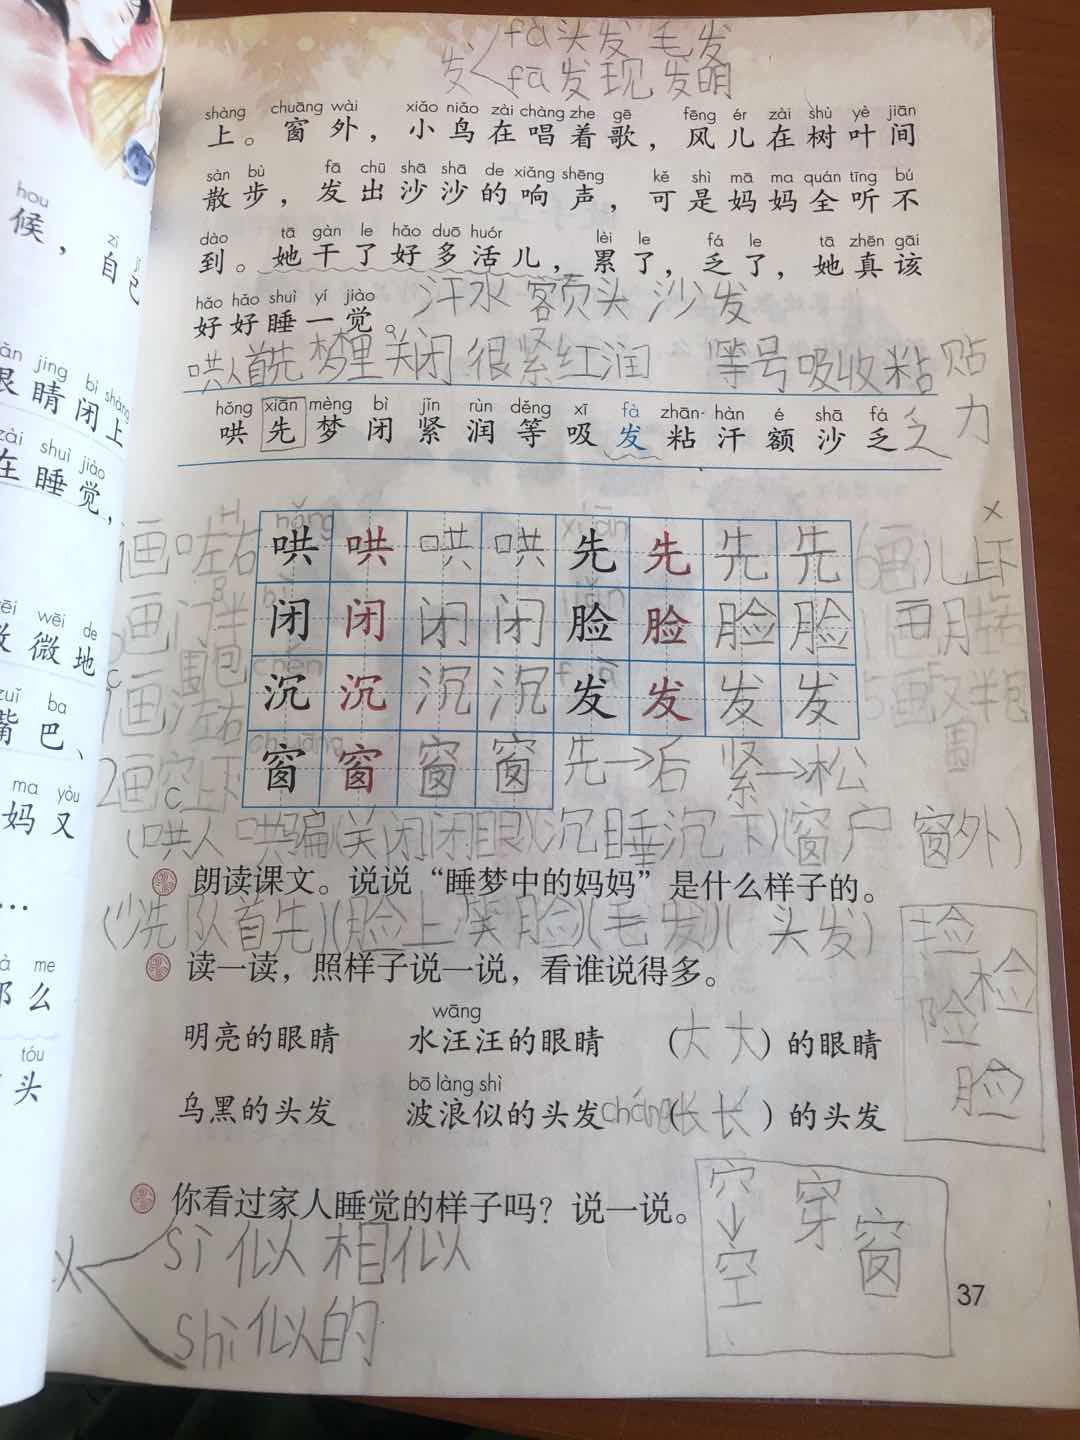 发 fà 头发 毛发
fā 发现 发明
shàng chuāng wài xiǎo niǎo zài chàng zhe gē fēng ér zài shù yè jiān
上。窗外，小鸟在唱着歌，风儿在树叶间
sàn bù fā chū shā shā de xiǎng shēng kě shì mā ma quán tīng bú
散步，发出沙沙的响声，可是妈妈全听不
dào tā gàn le hǎo duō huór lèi le fá le tā zhēn gāi
到。她干了好多活儿，累了，乏了，她真该
hǎo hǎo shuì yí jiào
好好睡一觉。
汗水 额头 沙发
哄人 首先 梦里 关闭 很紧 红润 等号 吸收 粘贴
hǒng xiān mèng bì jǐn rùn děng xī fà zhān hàn é shā fá
哄 先 梦 闭 紧 润 等 吸 发 粘 汗 额 沙 乏
乏力
hǒng xiān
画 哄 左右 哄 哄 哄 哄 先 先 先 先 6画 儿 上下
画 门 半包围 闭 闭 闭 闭 脸 脸 脸 脸 画 月 左右
chén fā
画 氵 左右 沉 沉 沉 沉 发 发 发 发 5画 又 半包围
chuāng
2画 穴 上下 窗 窗 窗 窗 先→后 紧→松
(哄人 哄骗)(关闭 闭眼)(沉睡 沉下)(窗户 窗外)
朗读课文。说说“睡梦中的妈妈”是什么样子的。
(少先队 首先)(脸上 笑脸)(毛发)(头发)
读一读，照样子说一说，看谁说得多。
wāng
明亮的眼睛 水汪汪的眼睛 (大大)的眼睛
bō làng shì
乌黑的头发 波浪似的头发 cháng(长长)的头发
捡 检
险
脸
你看过家人睡觉的样子吗？说一说。
穴 穿 窗
空
sì 似 相似
shì 似的
37
hou
候，
zì jǐ
自己
jīng bì shàng
眼睛闭上
zài shuì jiào
在睡觉，
wēi wēi de
微微地
zuǐ ba
嘴巴、
ma yòu
妈又
……
me
那么
tóu
头